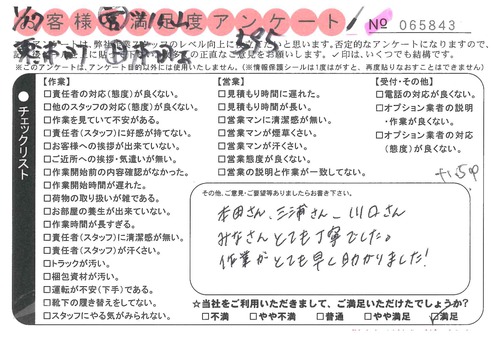 お客様満足度アンケート
No 065843
本アンケートは、弊社作業スタッフのレベル向上に
たいと思います。否定的なアンケートになりますので、
の正直なご意見をお寄せください。✓印は、いくつでも結構です。
※このアンケートは、アンケート目的以外には使用いたしません。(※情報保護シールは1度はがすと、再度貼りなおすことはできません)
チェックリスト
【作業】
□責任者の対応(態度)が良くない。
□他のスタッフの対応(態度)が良くない。
□作業を見ていて不安がある。
□責任者(スタッフ)に好感が持てない。
□お客様への挨拶が出来ていない。
□ご近所への挨拶・気遣いが無い。
□作業開始前の内容確認がなかった。
□作業開始時間が遅れた。
□荷物の取り扱いが雑である。
□お部屋の養生が出来ていない。
□作業時間が長すぎる。
□責任者(スタッフ)に清潔感が無い。
□責任者(スタッフ)が汗くさい。
□トラックが汚い。
□梱包資材が汚い。
□運転が不安(下手)である。
□靴下の履き替えをしてない。
□スタッフにやる気がみられない。
【営業】
□見積もり時間に遅れた。
□見積もり時間が長い。
□営業マンに清潔感が無い。
□営業マンが煙草くさい。
□営業マンが汗くさい。
□営業態度が良くない。
□営業の説明と作業が一致してない。
【受付・その他】
□電話の対応が良くない。
□オプション業者の説明
・作業が良くない。
□オプション業者の対応
(態度)が良くない。
+1.5p
その他、ご意見・ご要望等ありましたらお書き下さい。
本田さん、三浦さん、川口さん
みなさんとても丁寧でした。
作業がとても早く助かりました!
☆当社をご利用いただきまして、ご満足いただけたでしょうか?
□不満 □やや不満 □普通 □やや満足 ☑満足